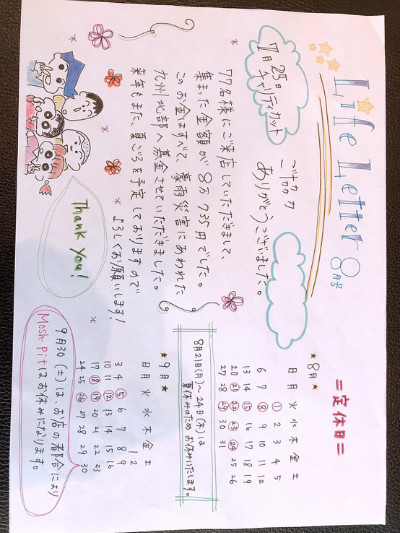 Life Letter 8月号
7月25日
チャリティカット
ご協力
ありがとうございました。
77名様にご来店していただきまして、
集まった金額が8万735円でした。
このお金はすべて、豪雨災害にあわれた
九州北部へ募金させていただきました。
来年もまた、夏ごろを予定しておりますので
よろしくお願いします!
Thank You!
=定休日=
★8月★
日 月 火 水 木 金 土
1 2 3 4 5
6 7 8 9 10 11 12
13 14 15 16 17 18 19
20 21 22 23 24 25 26
27 28 29 30 31
8月21日(月)〜24日(木)は
夏休みのためお休みいたします。
★9月★
日 月 火 水 木 金 土
1 2
3 4 5 6 7 8 9
10 11 12 13 14 15 16
17 18 19 20 21 22 23
24 25 26 27 28 29 30
9月30(土)は、お店の都合により
Mosh pitはお休みになります。